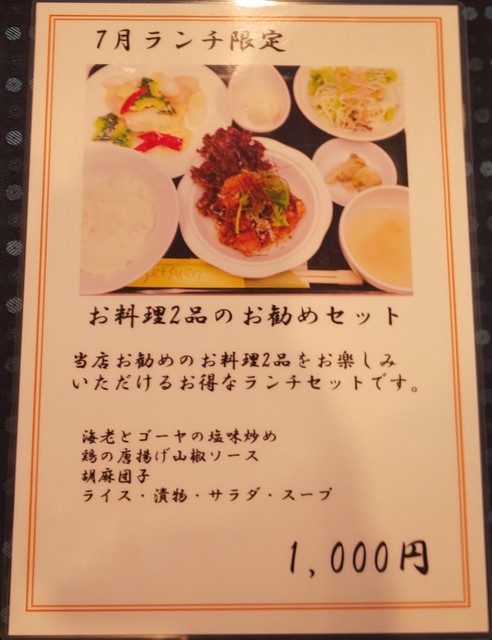 7月ランチ限定
お料理2品のお勧めセット
当店お勧めのお料理2品をお楽しみ
いただけるお得なランチセットです。
海老とゴーヤの塩味炒め
鶏の唐揚げ山椒ソース
胡麻団子
ライス・漬物・サラダ・スープ
1,000円